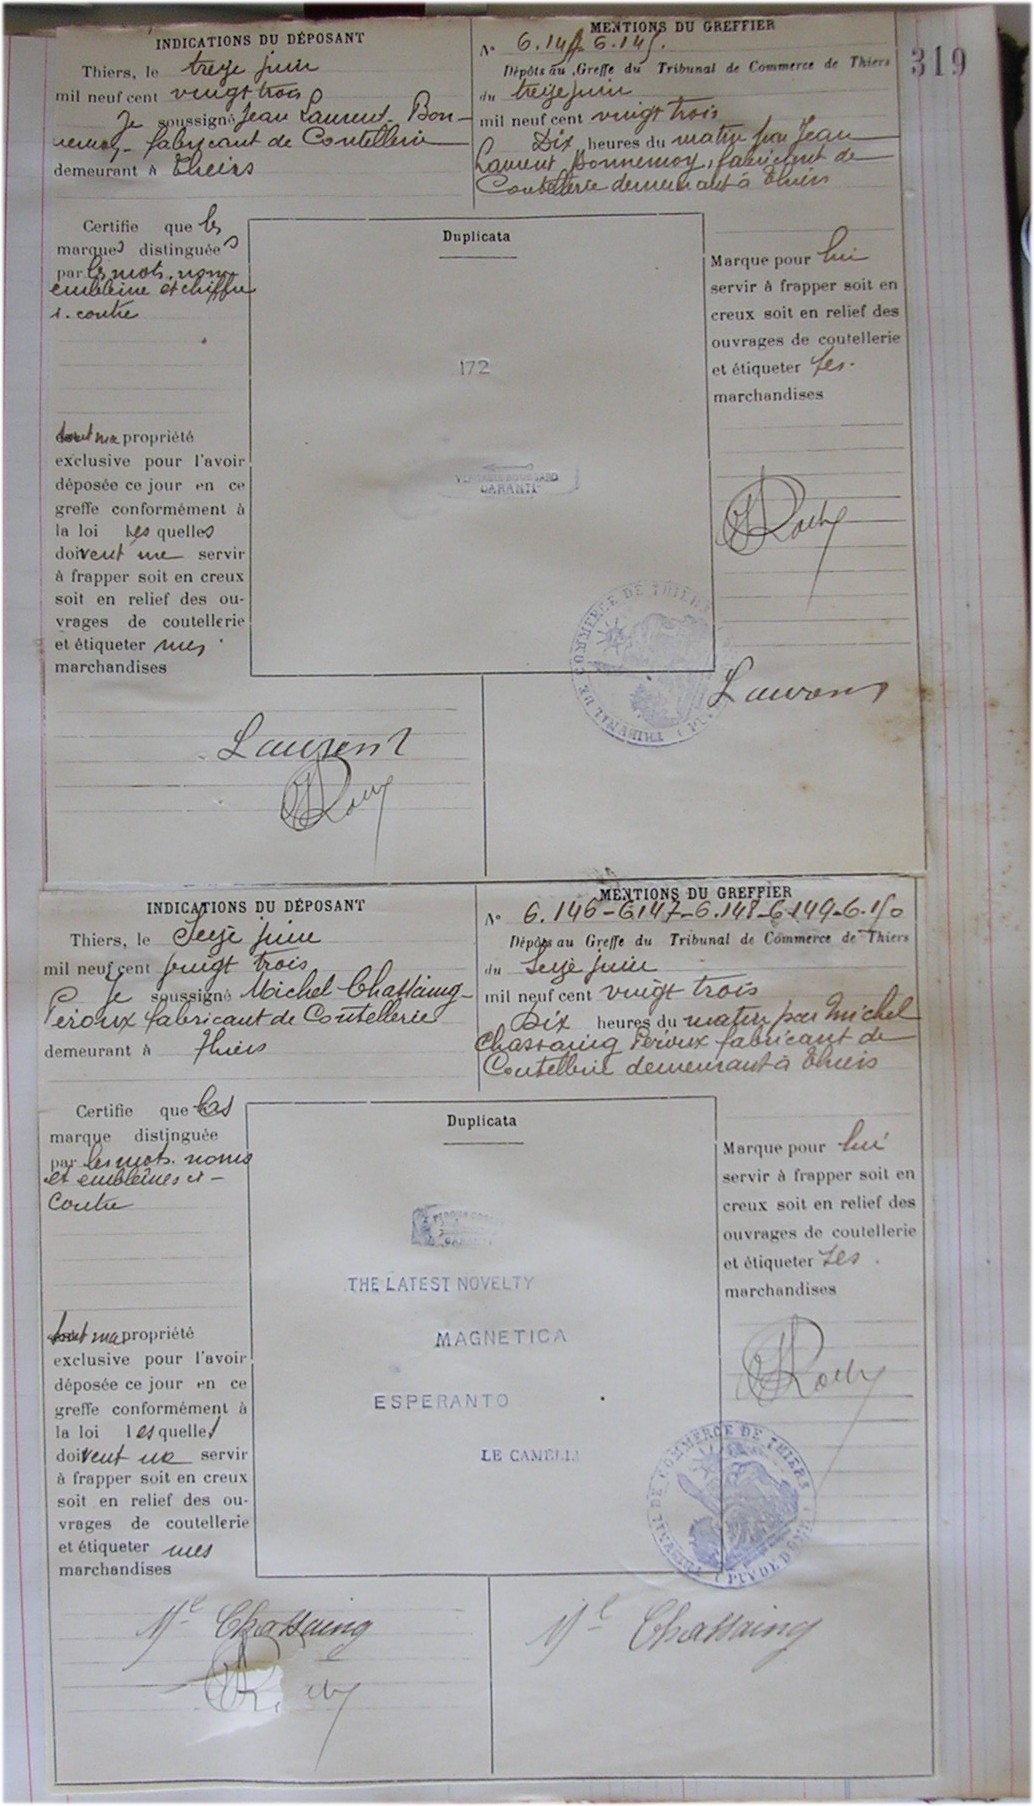 319
INDICATIONS DU DÉPOSANT
Thiers, le treize juin
mil neuf cent vingt trois
Je soussigné Jean Laurent Bon-
nemoy fabricant de Coutellerie
demeurant à Thiers
MENTIONS DU GREFFIER
N° 6.144-6.145.
Dépôts au Greffe du Tribunal de Commerce de Thiers
du treize juin
mil neuf cent vingt trois
Dix heures du matin par Jean
Laurent Bonnemoy, fabricant de
Coutellerie demeurant à Thiers
Certifie que les
marques distinguées
par les mots, noms
emblème et chiffre
ci-contre
dont ma propriété
exclusive pour l'avoir
déposée ce jour en ce
greffe conformément à
la loi lesquelles
doivent me servir
à frapper soit en creux
soit en relief des ou-
vrages de coutellerie
et étiqueter mes
marchandises
Duplicata
172
GARANTI
Marque pour lui
servir à frapper soit en
creux soit en relief des
ouvrages de coutellerie
et étiqueter ses
marchandises
TRIBUNAL DE COMMERCE DE THIERS
Laurent
Laurent
INDICATIONS DU DÉPOSANT
Thiers, le Seize juin
mil neuf cent vingt trois
Je soussigné Michel Chassaing-
Péroux fabricant de Coutellerie
demeurant à Thiers
MENTIONS DU GREFFIER
N° 6.146-6147-6.148-6149-6.150
Dépôts au Greffe du Tribunal de Commerce de Thiers
du Seize juin
mil neuf cent vingt trois
Dix heures du matin par Michel
Chassaing Péroux fabricant de
Coutellerie demeurant à Thiers
Certifie que les
marque distinguée
par les mots. noms
et emblèmes ci-
contre
dont ma propriété
exclusive pour l'avoir
déposée ce jour en ce
greffe conformément à
la loi lesquelles
doivent me servir
à frapper soit en creux
soit en relief des ou-
vrages de coutellerie
et étiqueter mes
marchandises
Duplicata
THE LATEST NOVELTY
MAGNETICA
ESPERANTO
LE CAMELI
Marque pour lui
servir à frapper soit en
creux soit en relief des
ouvrages de coutellerie
et étiqueter ses
marchandises
TRIBUNAL DE COMMERCE DE THIERS
(PUY DE DOME)
Mel Chassaing
Mel Chassaing